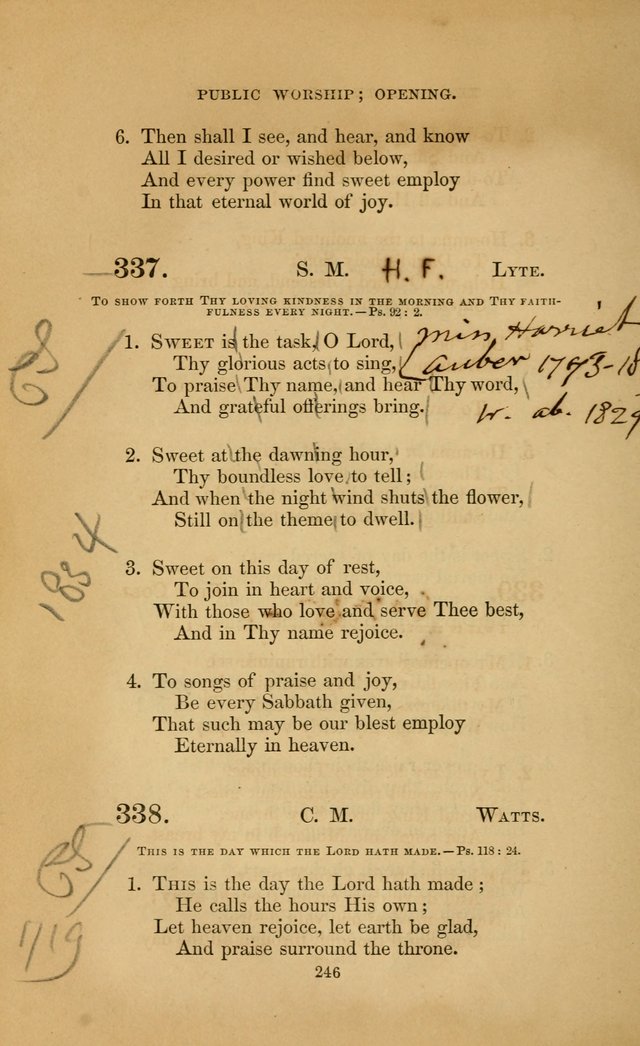 PUBLIC WORSHIP; OPENING.
6. Then shall I see, and hear, and know
All I desired or wished below,
And every power find sweet employ
In that eternal world of joy.
337. S. M. H. F. LYTE.
TO SHOW FORTH THY LOVING KINDNESS IN THE MORNING AND THY FAITH-
FULNESS EVERY NIGHT.—Ps. 92: 2.
1. SWEET is the task, O Lord,
Thy glorious acts to sing,
To praise Thy name, and hear Thy word,
And grateful offerings bring.
Miss Harriet
Auber 1793-18
W. ab. 1829
2. Sweet at the dawning hour,
Thy boundless love to tell;
And when the night wind shuts the flower,
Still on the theme to dwell.
1834
3. Sweet on this day of rest,
To join in heart and voice,
With those who love and serve Thee best,
And in Thy name rejoice.
4. To songs of praise and joy,
Be every Sabbath given,
That such may be our blest employ
Eternally in heaven.
338. C. M. WATTS.
THIS IS THE DAY WHICH THE LORD HATH MADE.—Ps. 118: 24.
1. THIS is the day the Lord hath made;
He calls the hours His own;
Let heaven rejoice, let earth be glad,
And praise surround the throne.
1719
246